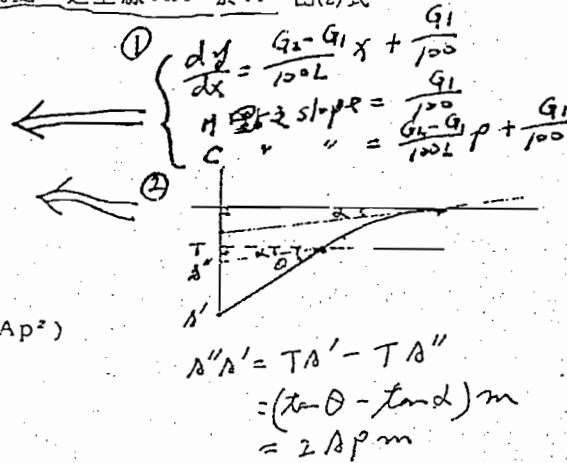 ①
dy/dx = (G₂-G₁)/100L x + G₁/100
A 點之 slope = G₁/100
C 〃 〃 = (G₂-G₁)/100L p + G₁/100
②
α
T
s"
α
θ
s'
Ap²)
s"s' = Ts' - Ts"
=(tan θ - tan α) m
= 2Apm